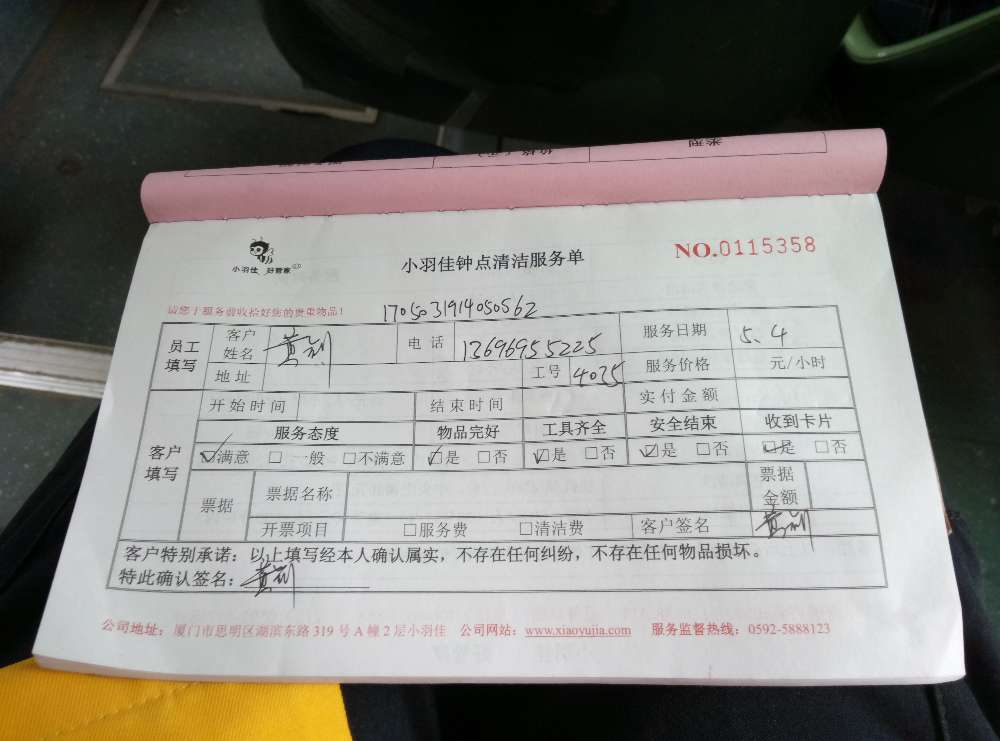 小羽佳 好管家
小羽佳钟点清洁服务单
NO.0115358
请您于服务前收拾好您的贵重物品!
1705031914050562
员工填写
客户姓名 黄 电话 13696955225 服务日期 5.4
地址 工号 4035 服务价格 元/小时
客户填写
开始时间 结束时间 实付金额
服务态度 物品完好 工具齐全 安全结束 收到卡片
☑满意 □一般 □不满意 ☑是 □否 ☑是 □否 ☑是 □否 ☑是 □否
票据 票据名称 票据金额
开票项目 □服务费 □清洁费 客户签名 黄
客户特别承诺:以上填写经本人确认属实,不存在任何纠纷,不存在任何物品损坏。
特此确认签名:黄
公司地址:厦门市思明区湖滨东路319号A幢2层小羽佳 公司网站:www.xiaoyujia.com 服务监督热线:0592-5888123